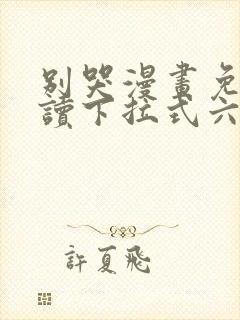 別哭漫畫免
讀下拉式六
許夏飛